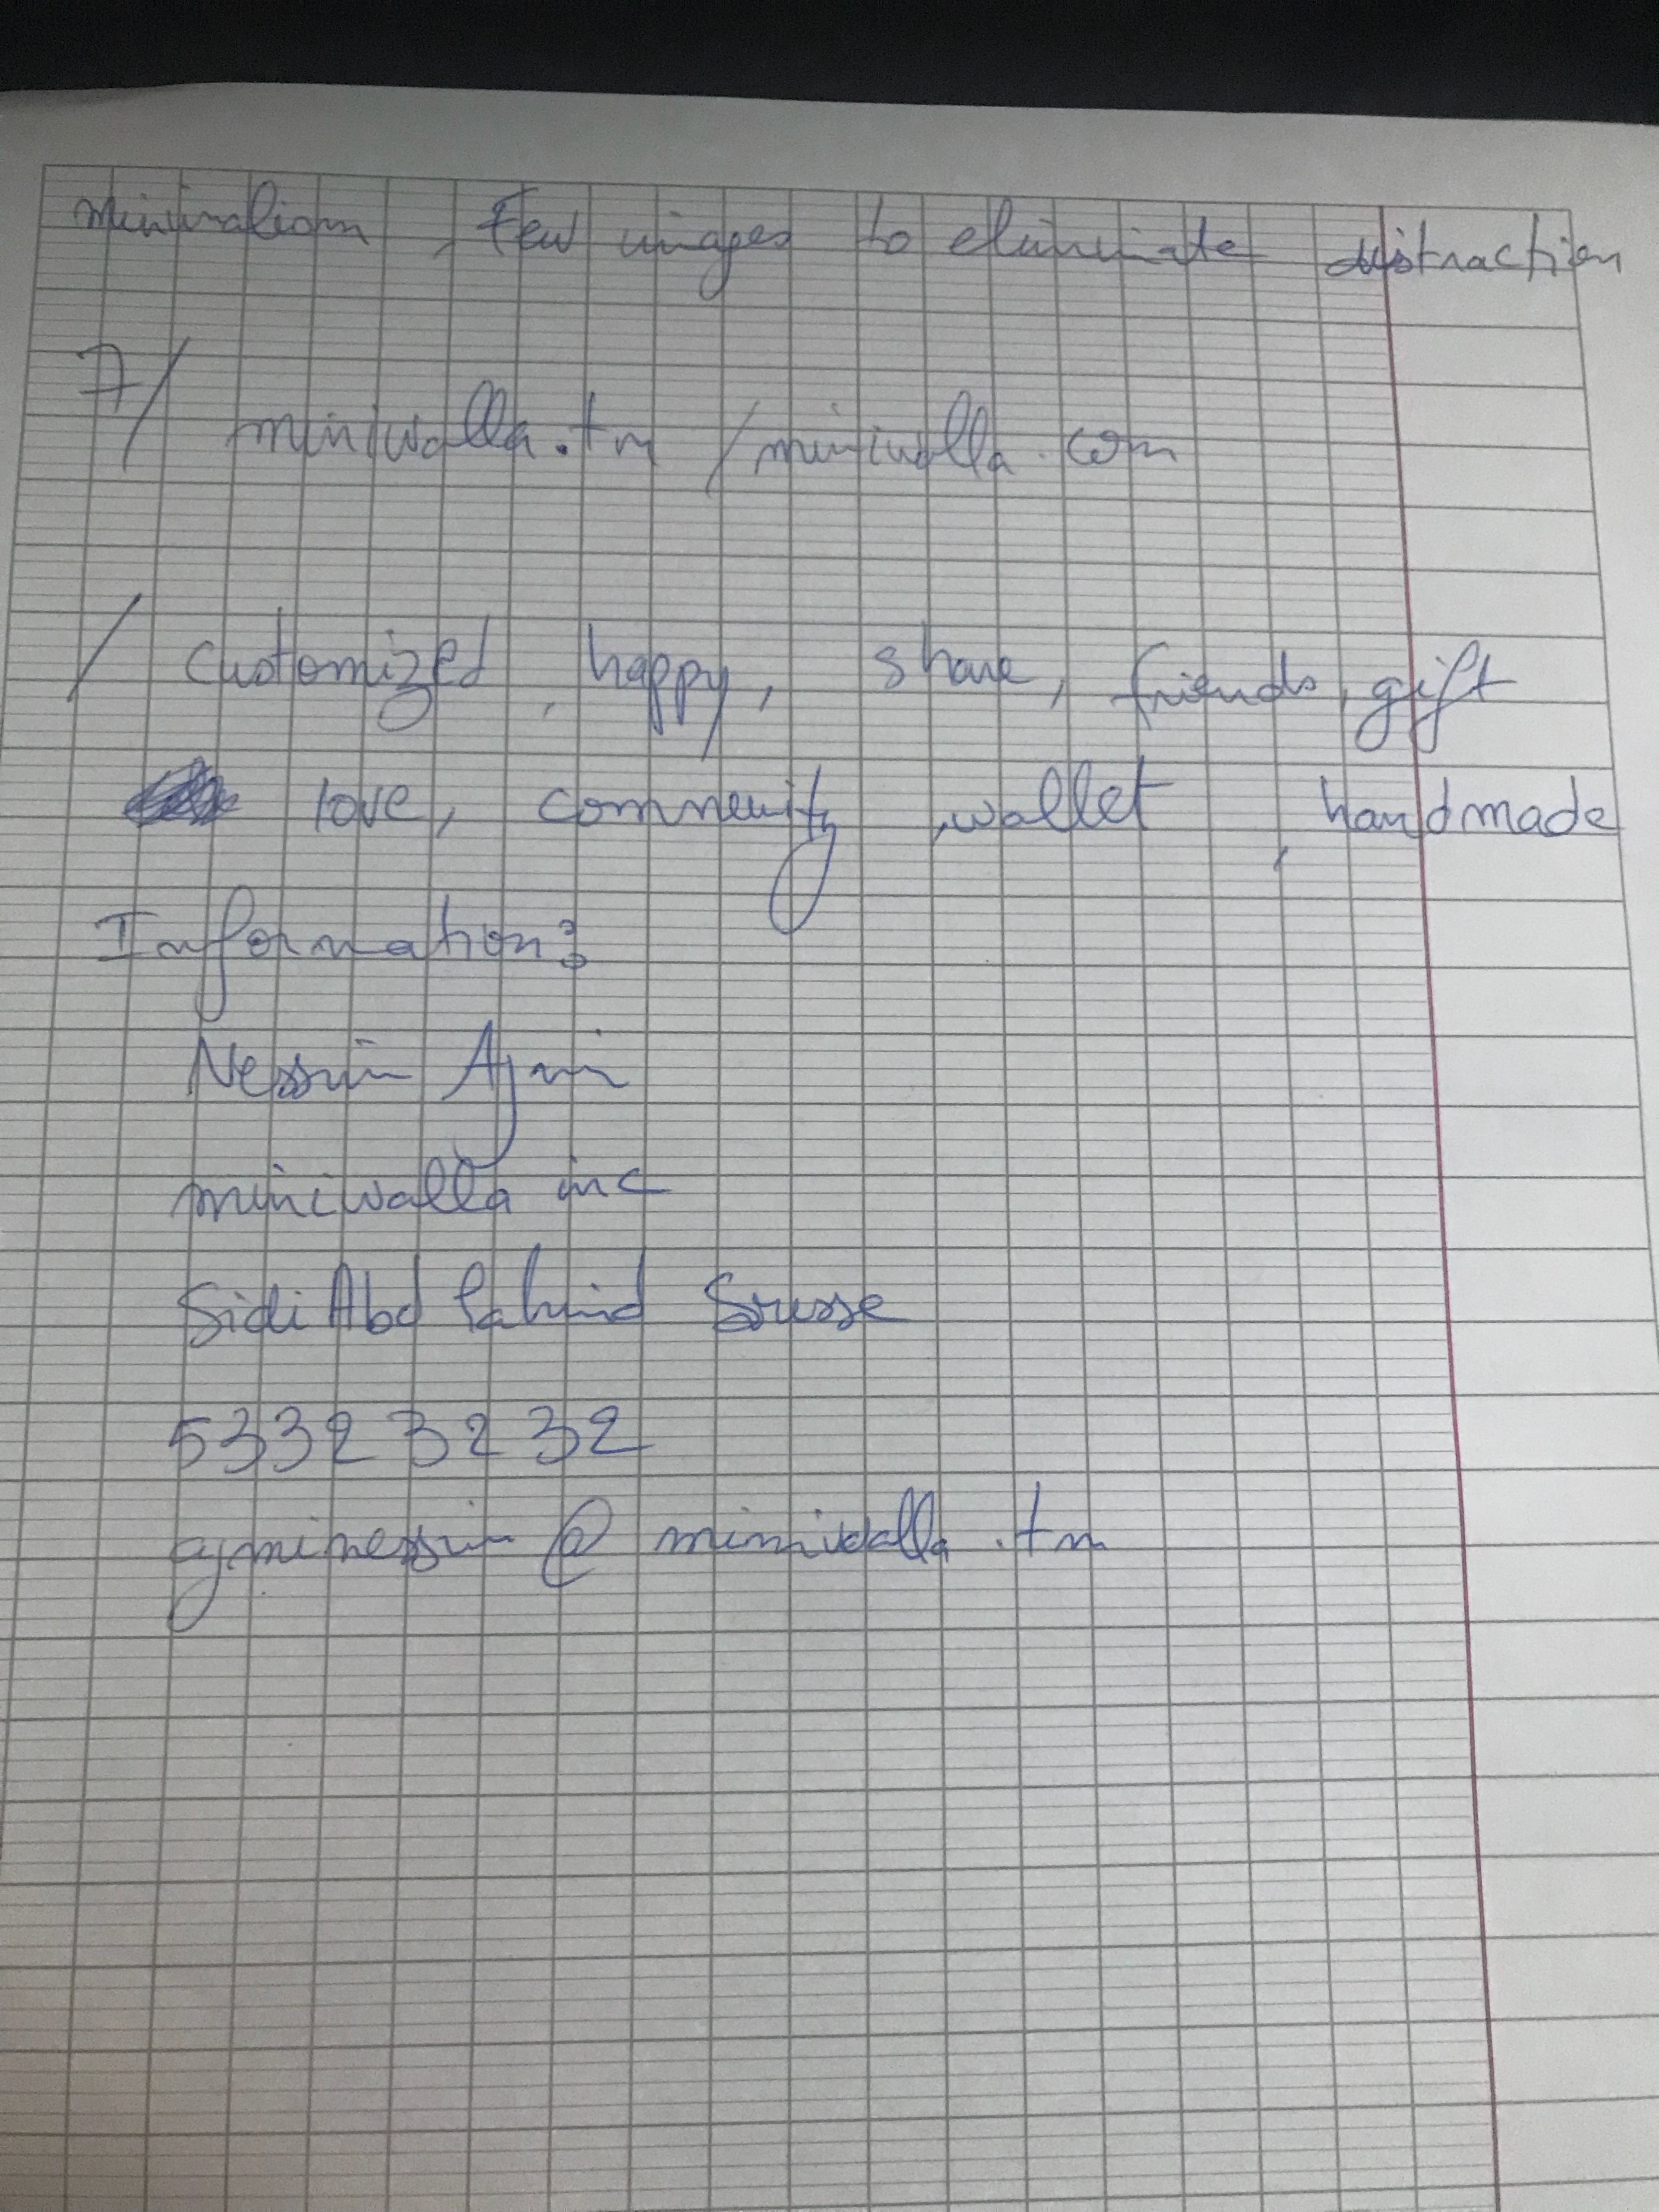 minimalism, Few images to eliminate distraction
7/
miniwalla.tn / miniwalla.com
/ customized, happy, share, friends, gift
love, community, wallet, handmade
Information:
Nessrin Ajmi
miniwalla inc
Sidi Abd Sousse
53323232
ajminessrin@miniwalla.tn